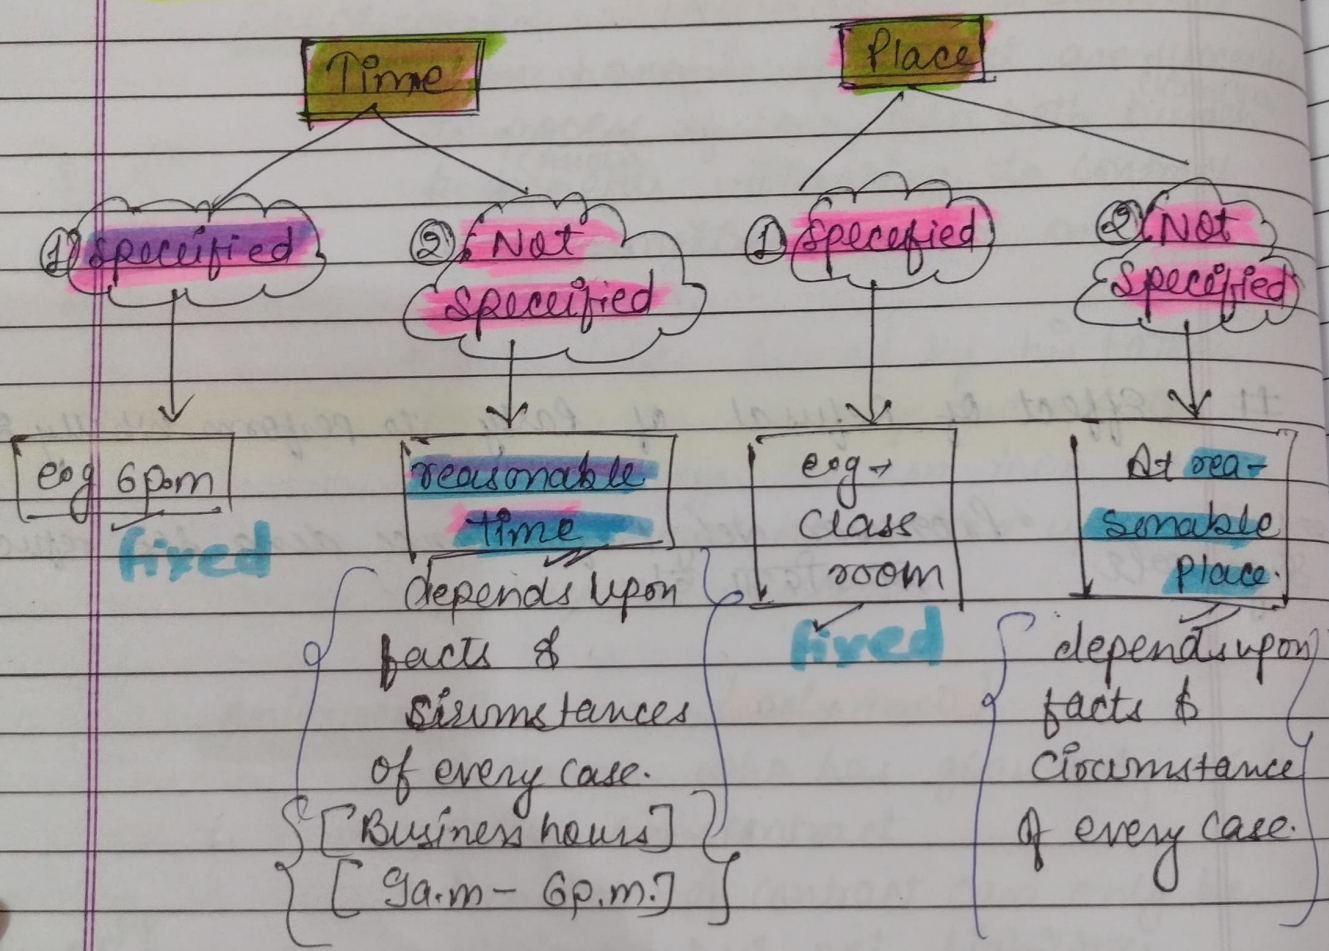 Time
① Speceified
eg 6p.m
fixed
② Not
Speceified
reasonable
time
depends upon
facts &
Sirumstances
of every case.
[Business hours]
[9a.m - 6p.m.]
Place
① Specefied
eg→
Class
room
fixed
② Not
Specefied
At rea-
sonable
Place.
depends upon
facts &
Circumstance
of every case.